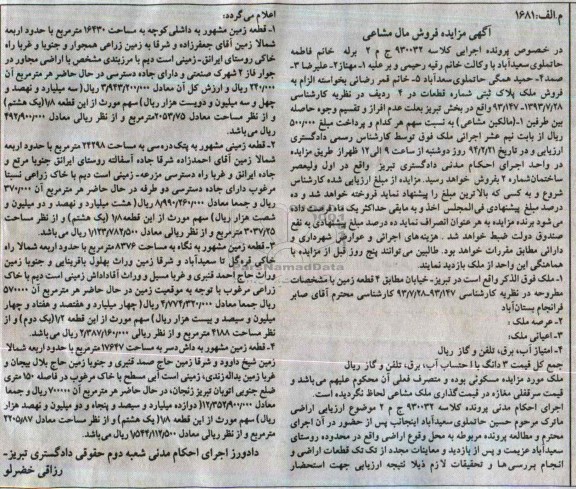 م.الف: ۱۶۸۱
آگهی مزایده فروش مال مشاعی
در خصوص پرونده اجرایی کلاسه ۹۳۰۰۳۲ ج م ۲ برله خانم فاطمه
حاتملوی سعیدآباد با وکالت خانم رقیه رحیمی و بر علیه ۱- مهناز ۲- علیرضا ۳-
صمد ۴- حمید همگی حاتملوی سعدآباد ۵- خانم قمر رضائی بخواسته الزام به
فروش ملک پلاک ثبتی شماره قطعات در ۴ ردیف در نظریه کارشناسی
۹۳/۱۴۷-۱۳۹۳/۷/۲۸ واقع در بخش تبریز بعلت عدم افراز و تقسیم وجوه حاصله
بین طرفین ۱-(مالکین مشاعی) به نسبت سهم هر کدام و پرداخت مبلغ ۵۰۰/۰۰۰
ریال از بابت نیم عشر اجرائی ملک فوق توسط کارشناس رسمی دادگستری
ارزیابی و در تاریخ ۹۴/۲/۲۱ روز دوشنبه از ساعت ۹ الی ۱۲ ظهر از طریق مزایده
در واحد اجرای احکام مدنی دادگستری تبریز واقع در اول ولیعصر
ساختمان شماره ۲ بفروش خواهد رسید. مزایده از مبلغ ارزیابی شده کارشناس
شروع و به کسی که بالاترین مبلغ را پیشنهاد نماید فروخته خواهد شد و ده
درصد مبلغ پیشنهادی فی المجلس اخذ و به مابقی حداکثر یک ماه فرصت داده
می شود برنده مزایده به هر عنوان انصراف نماید ده درصد مبلغ پیشنهادی به نفع
صندوق دولت ضبط خواهد شد. هزینه‌های اجرائی و عوارض شهرداری و
دارائی مطابق مقررات خواهد بود. طالبین می‌توانند پنج روز قبل از مزایده با
هماهنگی این واحد از ملک بازدید نمایند.
۱- ملک فوق الذکر واقع است در تبریز- خیابان مطابق ۴ قطعه زمین با مشخصات
مطروحه در نظریه کارشناسی ۹۳/۱۴۷-۹۳/۷/۲۸ کارشناسی محترم آقای صابر
فرانجام بستان‌آباد
۲- عرصه ملک:
۳- اعیانی ملک:
۴- امتیاز آب، برق، تلفن و گاز ریال
جمع کل قیمت ۳ دانگ با احتساب آب، برق، تلفن و گاز ریال
ملک مورد مزایده مسکونی بوده و متصرف فعلی آن محکوم علیهم می‌باشد و
قیمت سرقفلی مغازه در قیمت گذاری ملک مشاعی لحاظ نگردیده است.
اجرای احکام مدنی پرونده کلاسه ۹۳۰۰۳۲ ج م ۲ موضوع ارزیابی اراضی
ماترک مرحوم حسین حاتملوی سعیدآباد اینجانب پس از حضور در آن اجرای
محترم و مطالعه پرونده مربوطه به محل وقوع اراضی واقع در محدوده روستای
سعیدآباد عزیمت و پس از بازدید و معاینات مجدد از تک تک قطعات اراضی و
انجام بررسی‌ها و تحقیقات لازم ذیلا نتیجه ارزیابی جهت استحضار
اعلام می‌گردد:
۱- قطعه زمین مشهور به داشلی کوچه به مساحت ۱۶۴۳۰ مترمربع با حدود اربعه
شمالا زمین آقای جعفرزاده و شرقا به زمین زراعی همجوار و جنوبا و غربا راه
خاکی روستای ایرانق- زمینی است دیم با مرزبندی مشخص با اراضی مجاور در
جوار فاز ۲ شهرک صنعتی و دارای جاده دسترسی در حال حاضر هر مترمربع آن
۲۴۰/۰۰۰ ریال و ارزش کل آن معادل ۳/۹۴۳/۲۰۰/۰۰۰ ریال (سه میلیارد و نهصد و
چهل و سه میلیون و دویست هزار ریال) سهم مورث از این قطعه ۱/۸ (یک هشتم)
و از نظر مساحت معادل ۲۰۵۳/۷۵ مترمربع و از نظر ریالی معادل ۴۹۲/۹۰۰/۰۰۰
ریال می‌باشد.
۲- قطعه زمینی مشهور به پتک دره‌سی به مساحت ۲۴۲۹۸ مترمربع با حدود اربعه
شمالا زمین آقای احمدزاده شرقا جاده آسفالته روستای ایرانق جنوبا مرتع و
جاده ایرانق و غربا راه دسترسی مزرعه- زمینی است دیم با خاک زراعی نسبتا
مرغوب دارای جاده دسترسی دو طرفه در حال حاضر هر مترمربع آن ۳۷۰/۰۰۰
ریال و جمعا معادل ۸/۹۹۰/۲۶۰/۰۰۰ ریال (هشت میلیارد و نهصد و دو میلیون و
شصت هزار ریال) سهم مورث از این قطعه ۱/۸ (یک هشتم) و از نظر مساحت
۳۰۳۷/۲۵ مترمربع و از نظر ریالی معادل ۱/۱۲۳/۷۸۲/۵۰۰ ریال می‌باشد.
۳- قطعه زمین مشهور به نگاه به مساحت ۸۳۷۶ مترمربع با حدود اربعه شمالا راه
خاکی قره گل تا سعیدآباد و شرقا زمین وراث بهلول باقرینایی و جنوبا زمین
وراث حاج احمد قنبری و غربا مسیل و وراث آقاداداش زمینی است دیم با خاک
زراعی مرغوب با توجه به موقعیت زمین در حال حاضر هر مترمربع آن ۵۷۰۰۰۰
ریال جمعا معادل ۴/۷۷۴/۳۲۰/۰۰۰ ریال (چهار میلیارد و هفتصد و هفتاد و چهار
میلیون و سیصد و بیست هزار ریال) سهم مورث از این قطعه ۱/۲ (یک دوم) و از
نظر مساحت ۴۱۸۸ مترمربع و از نظر ریالی ۲/۳۸۷/۱۶۰/۰۰۰ ریال می‌باشد.
۴- قطعه زمین مشهور به داش دسر به مساحت ۱۷۶۴۷ مترمربع با حدود اربعه شمالا
زمین شیخ داوود و شرقا زمین حاج صمد قنبری و جنوبا زمین حاج بلال بیجان و
غربا زمین یداله زندی، زمینی است آبی مسطح با خاک مرغوب در فاصله ۱۵۰ متری
ضلع جنوبی اتوبان تبریز زنجان، در حال حاضر هر مترمربع آن ۷۰۰۰۰۰ ریال و جمعا
معادل ۱۲/۳۵۲/۹۰۰/۰۰۰ (دوازده میلیارد و سیصد و پنجاه و دو میلیون و نهصد هزار
ریال) سهم مورث از این قطعه ۱/۸ (یک هشتم) و از نظر مساحت ۲۲۰۵/۸۷
مترمربع و از نظر ریالی معادل ۱/۵۴۴/۱۱۲/۵۰۰ ریال می‌باشد.
دادورز اجرای احکام مدنی شعبه دوم حقوقی دادگستری تبریز-
رزاقی خضرلو